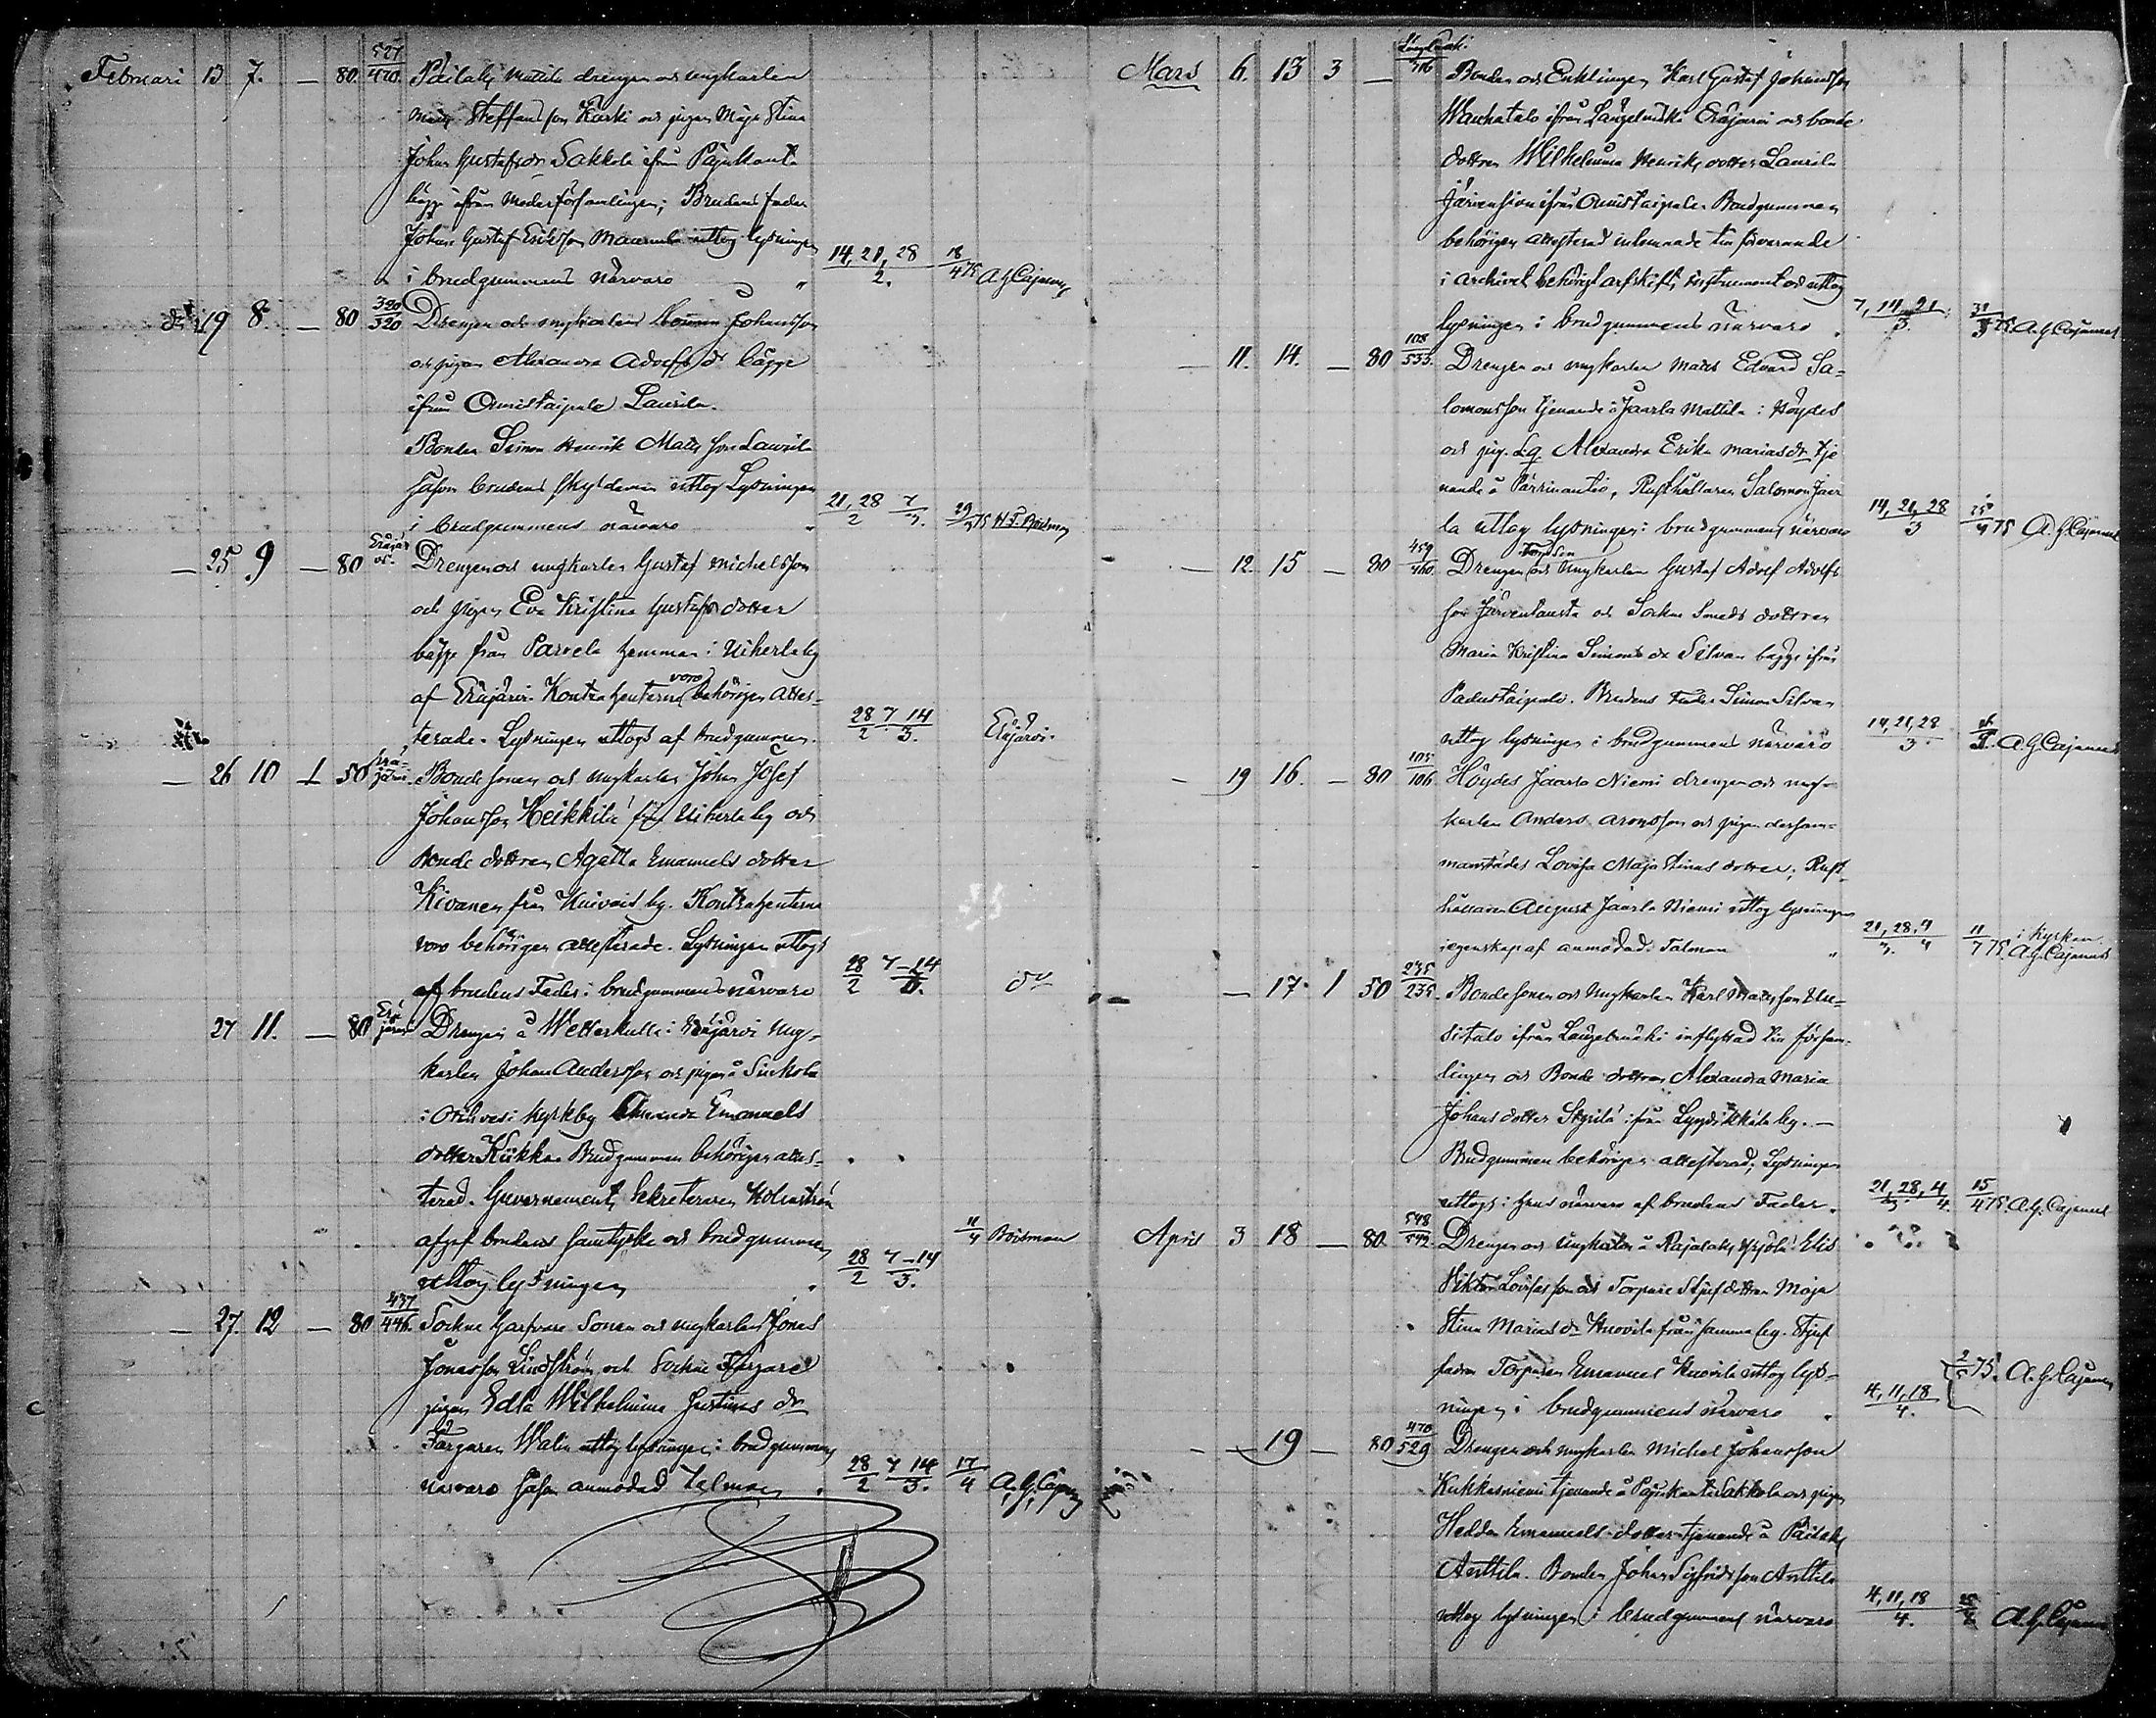 Februari 13 7. — 80. 527/470. Päilaks Mattila drengen och ungkarlen
Matts Steffansson Kaski och pigan Maja Stina
Johan Gustafsdr Sakkola ifrån Pajukanta
bägge ifrån Moderförsamlingen; Brudens fader
Johan Gustaf Eriksson uttog lysningen
i brudgummens närvaro 14, 21, 28/2. 18/4 75 A G Cajanus
19 8. — 80 320/320 Drengen och ungkarlen Johansson
och pigan Alexandra Adolfsdr bägge
ifrån Onnistaipale Laurila.
Bonden Simon Henrik Matsson Laurila
såsom brudens uttog Lysningen
i brudgummens närvaro 21, 28/2 7/3. 29/3 75 Boisman
— 25 9 — 80 Eräjärvi. Drengen och ungkarlen Gustaf Michelsson
och pigan Eva Kristina Gustafsdotter
bägge från Parvela hemman i Uiherla by
af Eräjärvi. Kontrahenterna voro behörigen attes-
terade. Lysningen uttogs af brudgummen. 28/2 7 14/3. Eräjärvi.
— 26 10 1 50 Erä-järvi. Bondesonen och ungkarlen Johan Josef
Johansson Heikkilä från Uiherla by och
Bondedottren Agatha Emanuelsdotter
Kivanen från Kuivais by. Kontrahenterna
voro behörigen attesterade. Lysningen uttogs
af brudens Fader i brudgummens närvaro 28/2 7–14/3. do
27 11. — 80 Erä-järvi Drengen å i Eräjärvi ung-
karlen Johan Andersson och pigan å Sinkola
i Orihvesi kyrkby Amanda Emanuels
dotter Kukka. Brudgummen behörigen attes-
terad. Guvernements Sekreteraren Holmström
afgaf brudens samtycke och brudgummen
uttog lysningen 28/2 7–14/3. 11/4 Boisman
— 27. 12 — 80 437/446. Sockne Garfvare Sonen och ungkarlen Jonas
Jonasson Lindström och Sockne Färgare
pigan Edla Wilhelmina Justinas dr
Färgaren Walin uttog lysningen i brudgummens
närvaro såsom anmodad Talman. 28/2 7 14/3. 17/4 A. G. Cajanus
Mars 6. 13 3 — Bonden och Enklingen Karl Gustaf Johansson
Wanhatalo ifrån Längelmäki Eräjärvi och bonde
dottren Wilhelmina Henriksdotter Laurila
Järvensivu ifrån Onnistaipale. Brudgummen
behörigen attesterad inlemnade till förvarande
i archivet behörigt arfskiftsinstrument och uttog
lysningen i brudgummens närvaro 7, 14, 21/3. 31/3 75. A. G. Cajanus
— 11. 14. — 80 108/533. Drengen och ungkarlen Matts Edvard Sa-
lomonsson tjenande i Jaarla Mattila i Höydes
och pig. Alexandra Erika Mariasdr tje
nande å , Rusthållaren Salomon Jaar
la uttog lysningen i brudgummens närvaro 14, 21, 28/3 25/4 75 A. G. Cajanus
— 12. 15 — 80 459/460. Drengen och Ungkarlen Gustaf Adolf Adolfs
son Järventausta och Sockne Smeds dottren
Maria Kristina Simonsdr Silvan bägge ifrån
Padustaipale. Brudens Fader Simon Silvan
uttog lysningen i brudgummens närvaro 14, 21, 28/3. A G Cajanus
— 19 16. — 80 105/106. Höydes Jaarla Niemi drengen och ung-
karlen Anders Aronsson och pigan dersam-
manstädes Lovisa Maja Stinas dotter; Rust-
hållaren August Jaarla Niemi uttog lysningen
i egenskap af anmodad Talman 21, 28/3. 4/4 11/7 75. i Kyrkan A. G. Cajanus
— 17. 1 50 235/235. Bondesonen och Ungkarlen Karl Matsson Uu-
sitalo ifrån Längelmäki inflyttad till försam-
lingen och Bonde dottren Alexandra Maria
Johansdotter Skyttä ifrån Lyydikkälä by. —
Brudgummen behörigen attesterad, Lysningen
uttogs i hans närvaro af brudens Fader. 21, 28/3, 4/4. 15/4 75. A. G. Cajanus
April 3 18 — 80. 548/542 Drengen och Ungkarlen å Rajalaks Yrjölä Elis
Viktor Lovisasson och Torpare Stjufdottren Maja
Stina Mariasdr Knovila från samma by. Stjuf
fadren Torparen Emanuel Knovila uttog lys-
ningen i brudgummens närvaro 4, 11, 18/4. 2/5 75. A. G. Cajanus
— — 19 — 80 470/529 Drengen och ungkarlen Michel Johansson
Kukkasniemi tjenande å Pajukanta Sakkola och pigan
Hedda Emanuelsdotter tjenande å Päilaks
Anttila. Bonden Johan Sigfridsson Anttila
uttog lysningen i brudgummens närvaro 4, 11, 18/4. A. G. Cajanus